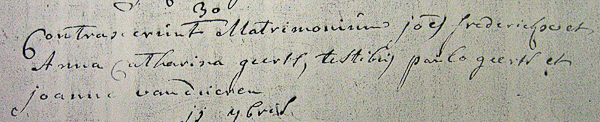 30
Contraxerunt Matrimonium joēs frederickx et
Anna Catharina geerts, testibus paulo geerts et
joanne van dueren
ij 9bris